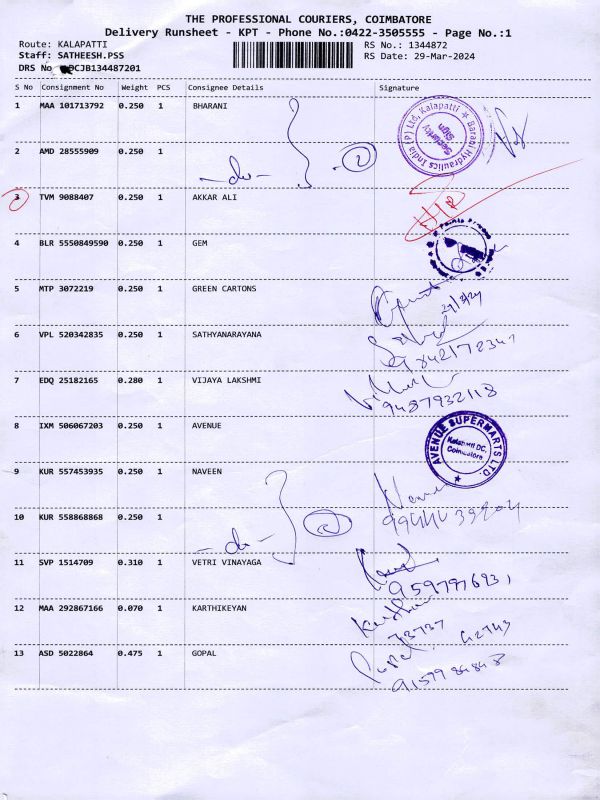 THE PROFESSIONAL COURIERS, COIMBATORE
Delivery Runsheet - KPT - Phone No.:0422-3505555 - Page No.:1
Route: KALAPATTI
RS No.: 1344872
Staff: SATHEESH.PSS
RS Date: 29-Mar-2024
DRS No DCJB134487201
S No Consignment No Weight PCS Consignee Details Signature
1 MAA 101713792 0.250 1 BHARANI
Barani Hydraulics India (P) Ltd, Kalapatti
Security
Sign
2 AMD 28555909 0.250 1 -do- 2
3 TVM 9088407 0.250 1 AKKAR ALI
4 BLR 5550849590 0.250 1 GEM
5 MTP 3072219 0.250 1 GREEN CARTONS
29/3/24
6 VPL 520342835 0.250 1 SATHYANARAYANA
7 EDQ 25182165 0.280 1 VIJAYA LAKSHMI
9487932118
8 IXM 506067203 0.250 1 AVENUE
AVENUE SUPERMARTS LTD.
Kalapatti DC,
Coimbatore
9 KUR 557453935 0.250 1 NAVEEN
10 KUR 558868868 0.250 1 -do- 2
11 SVP 1514709 0.310 1 VETRI VINAYAGA
9597976931
12 MAA 292867166 0.070 1 KARTHIKEYAN
73737 42743
13 ASD 5022864 0.475 1 GOPAL
Gopal